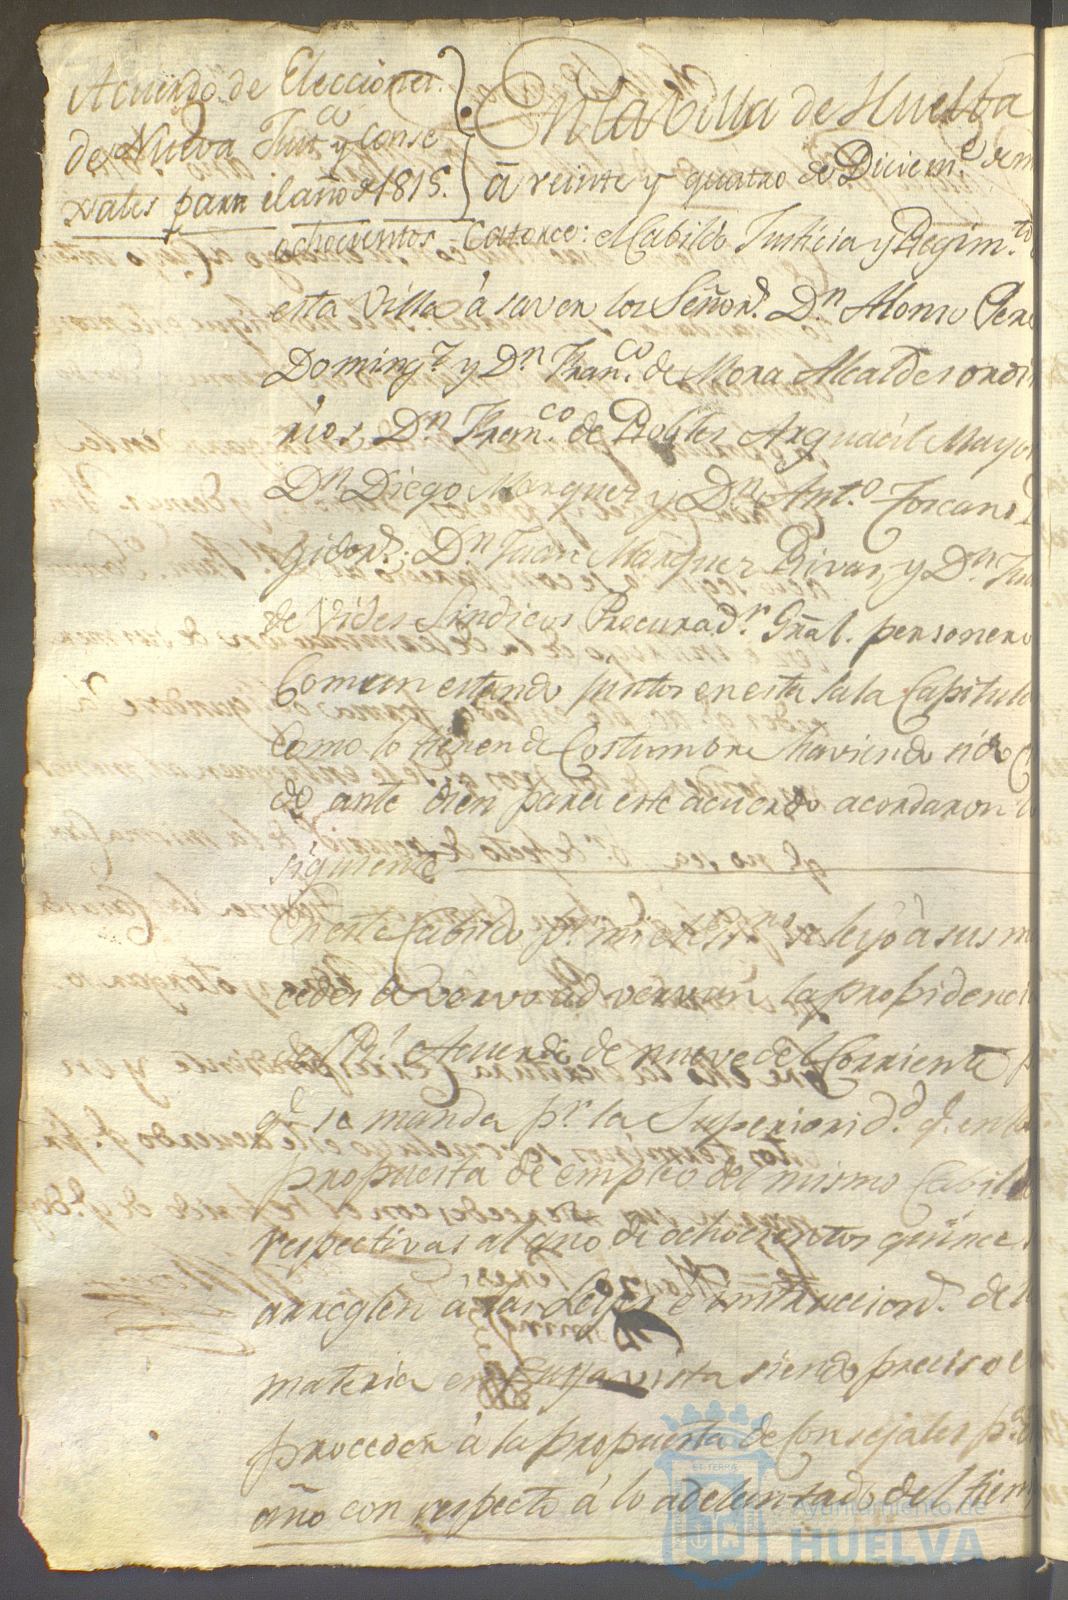 Acuerdo de Elecciones
de Nueva Just.ca y Conse
xales para el año d 1815.
En la Villa de Huelba
â veinte y quatro de Diciem.e de m
ochocientos Catorce: el Cabildo Justicia y Regim.to
esta Villa â saver los Señor.s D.n Alonso Pere
Doming.z y D.n Fran.co de Mora Alcaldes ordi
rios, D.n Fran.co de Robles Arguacil Mayo
D.n Diego Marquez y D.n Ant.o Toscano
gidor.s, D.n Juan Marquez Rivas, y D.n Ju
de Vides Sindicos Procurad.r Gral. personero
Comun estando juntos en esta sala Capitula
Como lo tienen de Costumbre haviendo sido
do ante diem para este acuerdo acordaron
siguiente
En este Cabildo p.r mi el es.no se leyó â sus m
cedes de vervo ad vervun la probidenci
del R.l Acuerdo de nueve del Corriente
q.e se manda p.r la Superiorid.d q.e en la
propuesta de empleo del mismo Cabil
respectivas al año de ochocientos quince
arreglen â las Leyes e instruccion.s de
materia en cuya vista siendo preciso
proceder â la propuesta de Consejales p.a
año con respecto â lo adelantado del tiem
Ayuntamiento de
HUELVA